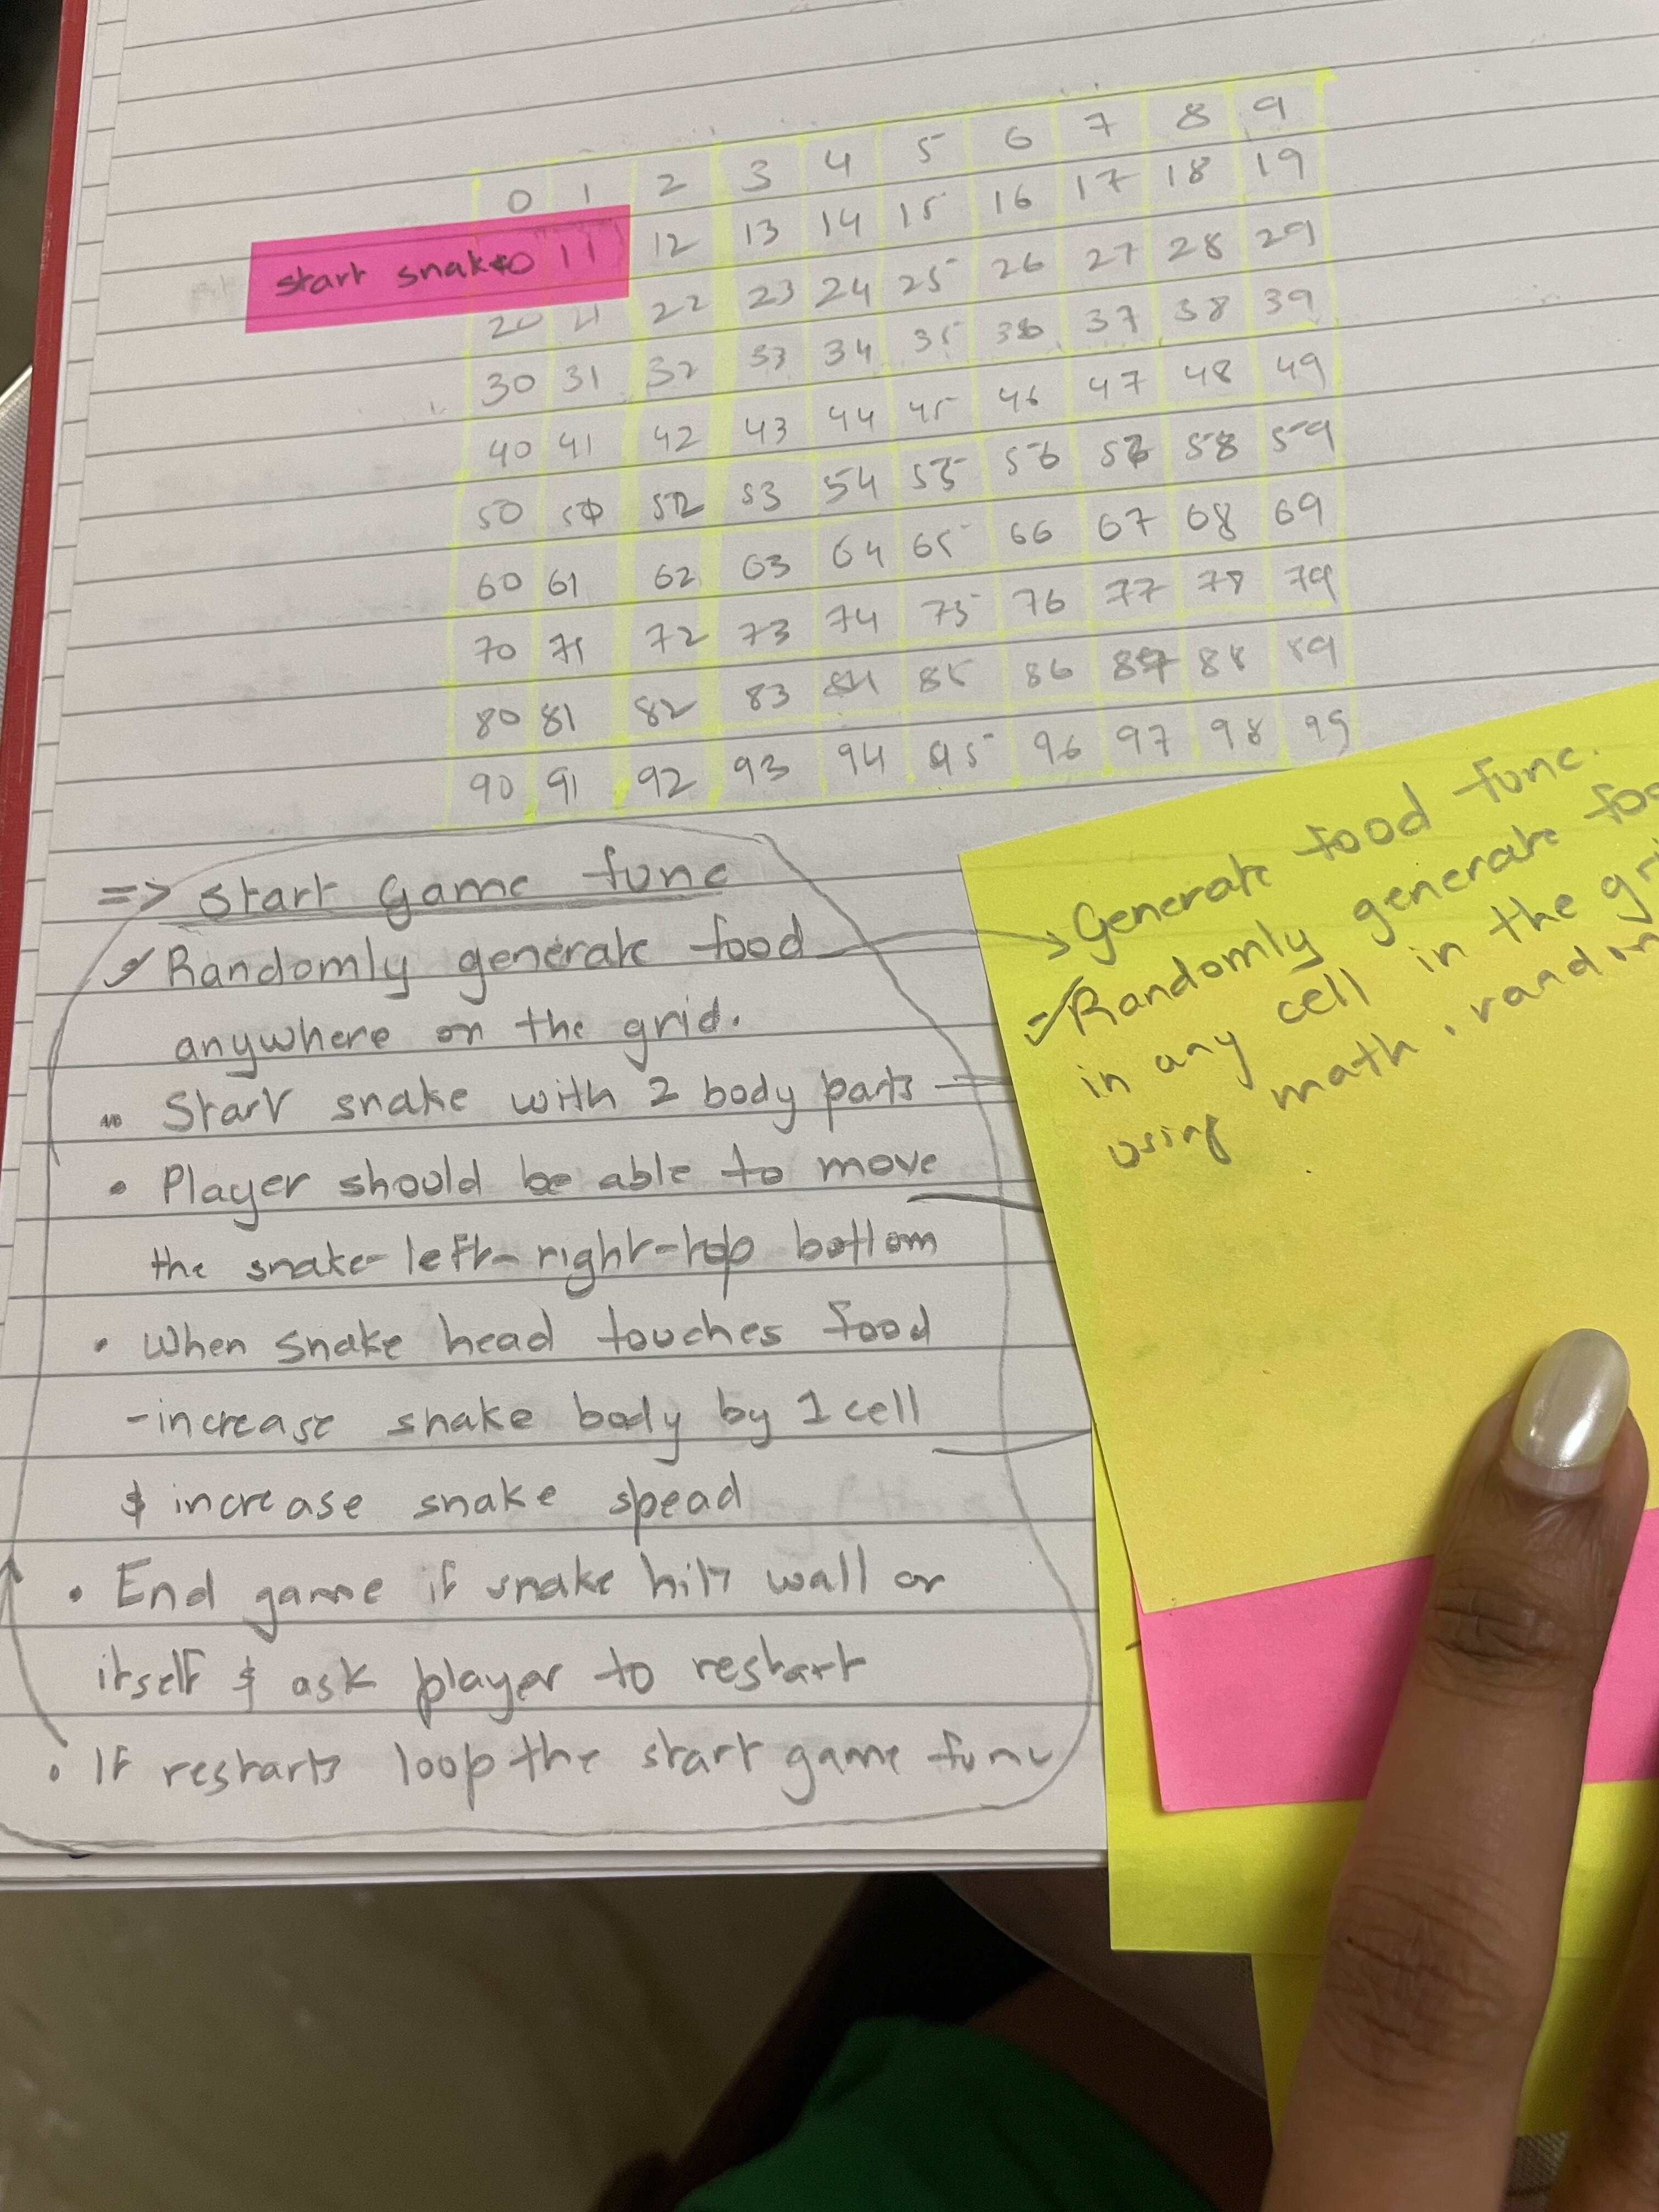 0 1 2 3 4 5 6 7 8 9
start snake 10 11 12 13 14 15 16 17 18 19
20 21 22 23 24 25 26 27 28 29
30 31 32 33 34 35 36 37 38 39
40 41 42 43 44 45 46 47 48 49
50 51 52 53 54 55 56 57 58 59
60 61 62 63 64 65 66 67 68 69
70 71 72 73 74 75 76 77 78 79
80 81 82 83 84 85 86 87 88 89
90 91 92 93 94 95 96 97 98 99
=> Start game func
Randomly generate food
anywhere on the grid.
Start snake with 2 body parts
• Player should be able to move
the snake-left-right-top bottom
• When snake head touches food
-increase snake body by 1 cell
& increase snake spead
• End game if snake hits wall or
itself & ask player to restart
• If restarts loop the start game func
Generate food func.
Randomly generate foo
in any cell in the gri
using math.random